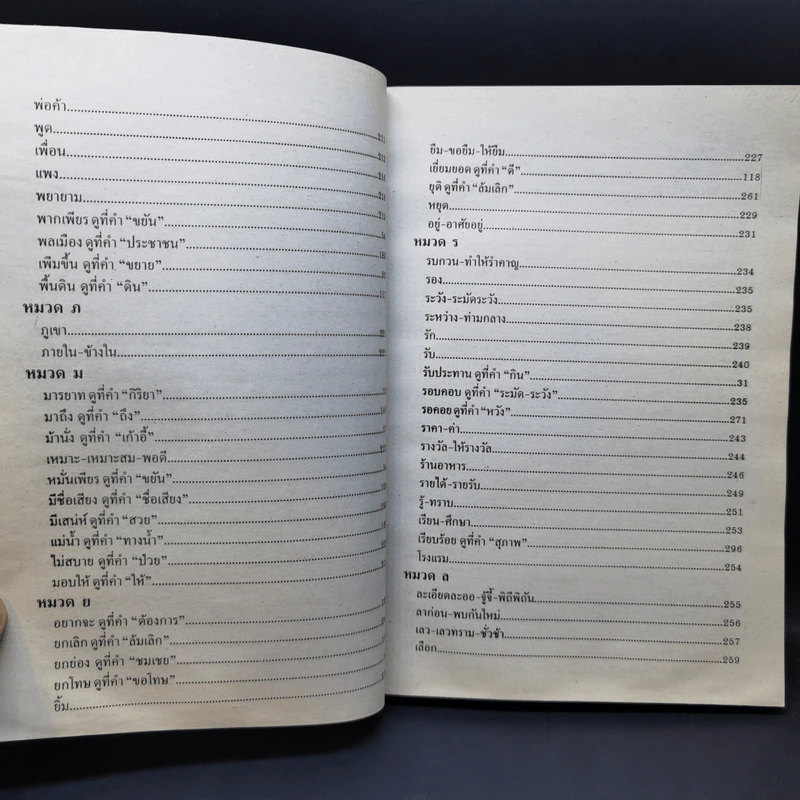 พ่อค้า
พูด 211
เพื่อน
แพง
พยายาม
พากเพียร ดูที่คำ “ขยัน”
พลเมือง ดูที่คำ “ประชาชน”
เพิ่มขึ้น ดูที่คำ “ขยาย”
พื้นดิน ดูที่คำ “ดิน”
หมวด ภ
ภูเขา
ภายใน-ข้างใน
หมวด ม
มารยาท ดูที่คำ “กิริยา”
มาถึง ดูที่คำ “ถึง”
ม้านั่ง ดูที่คำ “เก้าอี้”
เหมาะ-เหมาะสม-พอดี
หมั่นเพียร ดูที่คำ “ขยัน”
มีชื่อเสียง ดูที่คำ “ชื่อเสียง”
มีเสน่ห์ ดูที่คำ “สวย”
แม่น้ำ ดูที่คำ “ทางน้ำ”
ไม่สบาย ดูที่คำ “ป่วย”
มอบให้ ดูที่คำ “ให้”
หมวด ย
อยากจะ ดูที่คำ “ต้องการ”
ยกเลิก ดูที่คำ “ล้มเลิก”
ยกย่อง ดูที่คำ “ชมเชย”
ยกโทษ ดูที่คำ “ขอโทษ”
ยิ้ม
ยืม-ขอยืม-ให้ยืม 227
เยี่ยมยอด ดูที่คำ “ดี” 118
ยุติ ดูที่คำ “ล้มเลิก” 261
หยุด 229
อยู่-อาศัยอยู่ 231
หมวด ร
รบกวน-ทำให้รำคาญ 234
รอง 235
ระวัง-ระมัดระวัง 235
ระหว่าง-ท่ามกลาง 238
รัก 239
รับ 240
รับประทาน ดูที่คำ “กิน” 31
รอบคอบ ดูที่คำ “ระมัด-ระวัง” 235
รอคอย ดูที่คำ “หวัง” 271
ราคา-ค่า 243
รางวัล-ให้รางวัล 244
ร้านอาหาร 246
รายได้-รายรับ 249
รู้-ทราบ 251
เรียน-ศึกษา 253
เรียบร้อย ดูที่คำ “สุภาพ” 296
โรงแรม 254
หมวด ล
ละเอียดละออ-จู้จี้-พิถีพิถัน 255
ลาก่อน-พบกันใหม่ 256
เลว-เลวทราม-ชั่วช้า 257
เลือก 259